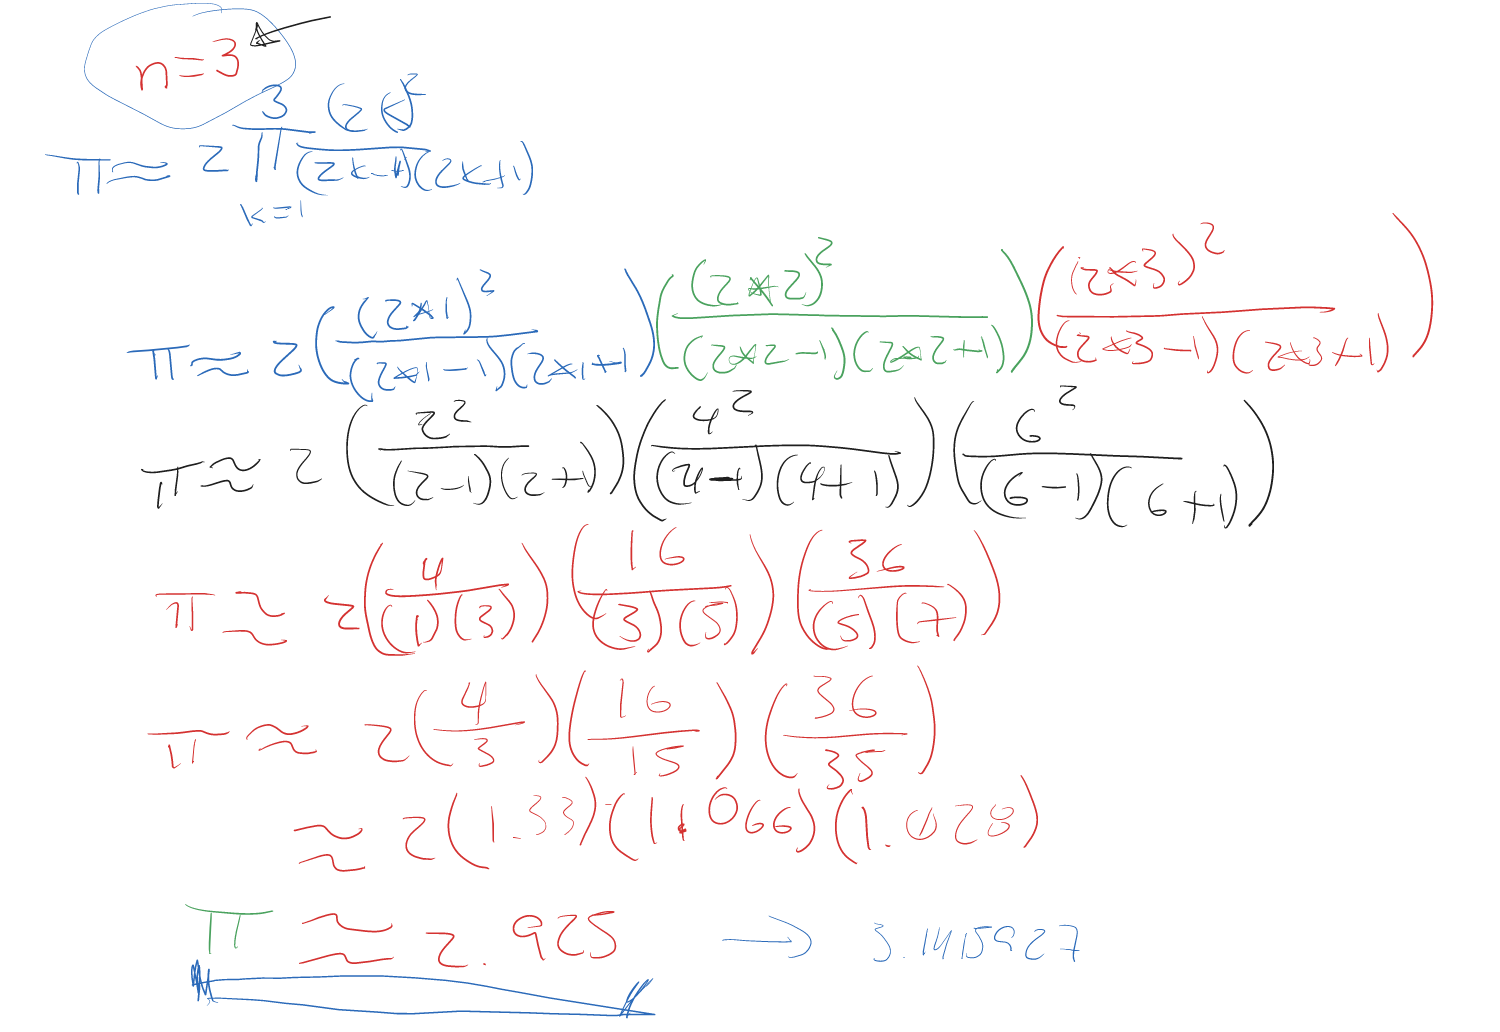 n=3
π ≈ 2 ∏_{k=1}^{3} (2k)^2 / (2k-1)(2k+1)
π ≈ 2 ( (2*1)^2 / (2*1-1)(2*1+1) ) ( (2*2)^2 / (2*2-1)(2*2+1) ) ( (2*3)^2 / (2*3-1)(2*3+1) )
π ≈ 2 ( 2^2 / (2-1)(2+1) ) ( 4^2 / (4-1)(4+1) ) ( 6^2 / (6-1)(6+1) )
π ≈ 2 ( 4 / (1)(3) ) ( 16 / (3)(5) ) ( 36 / (5)(7) )
π ≈ 2 ( 4 / 3 ) ( 16 / 15 ) ( 36 / 35 )
≈ 2 (1.33) (1.066) (1.028)
π ≈ 2.925 → 3.1415927